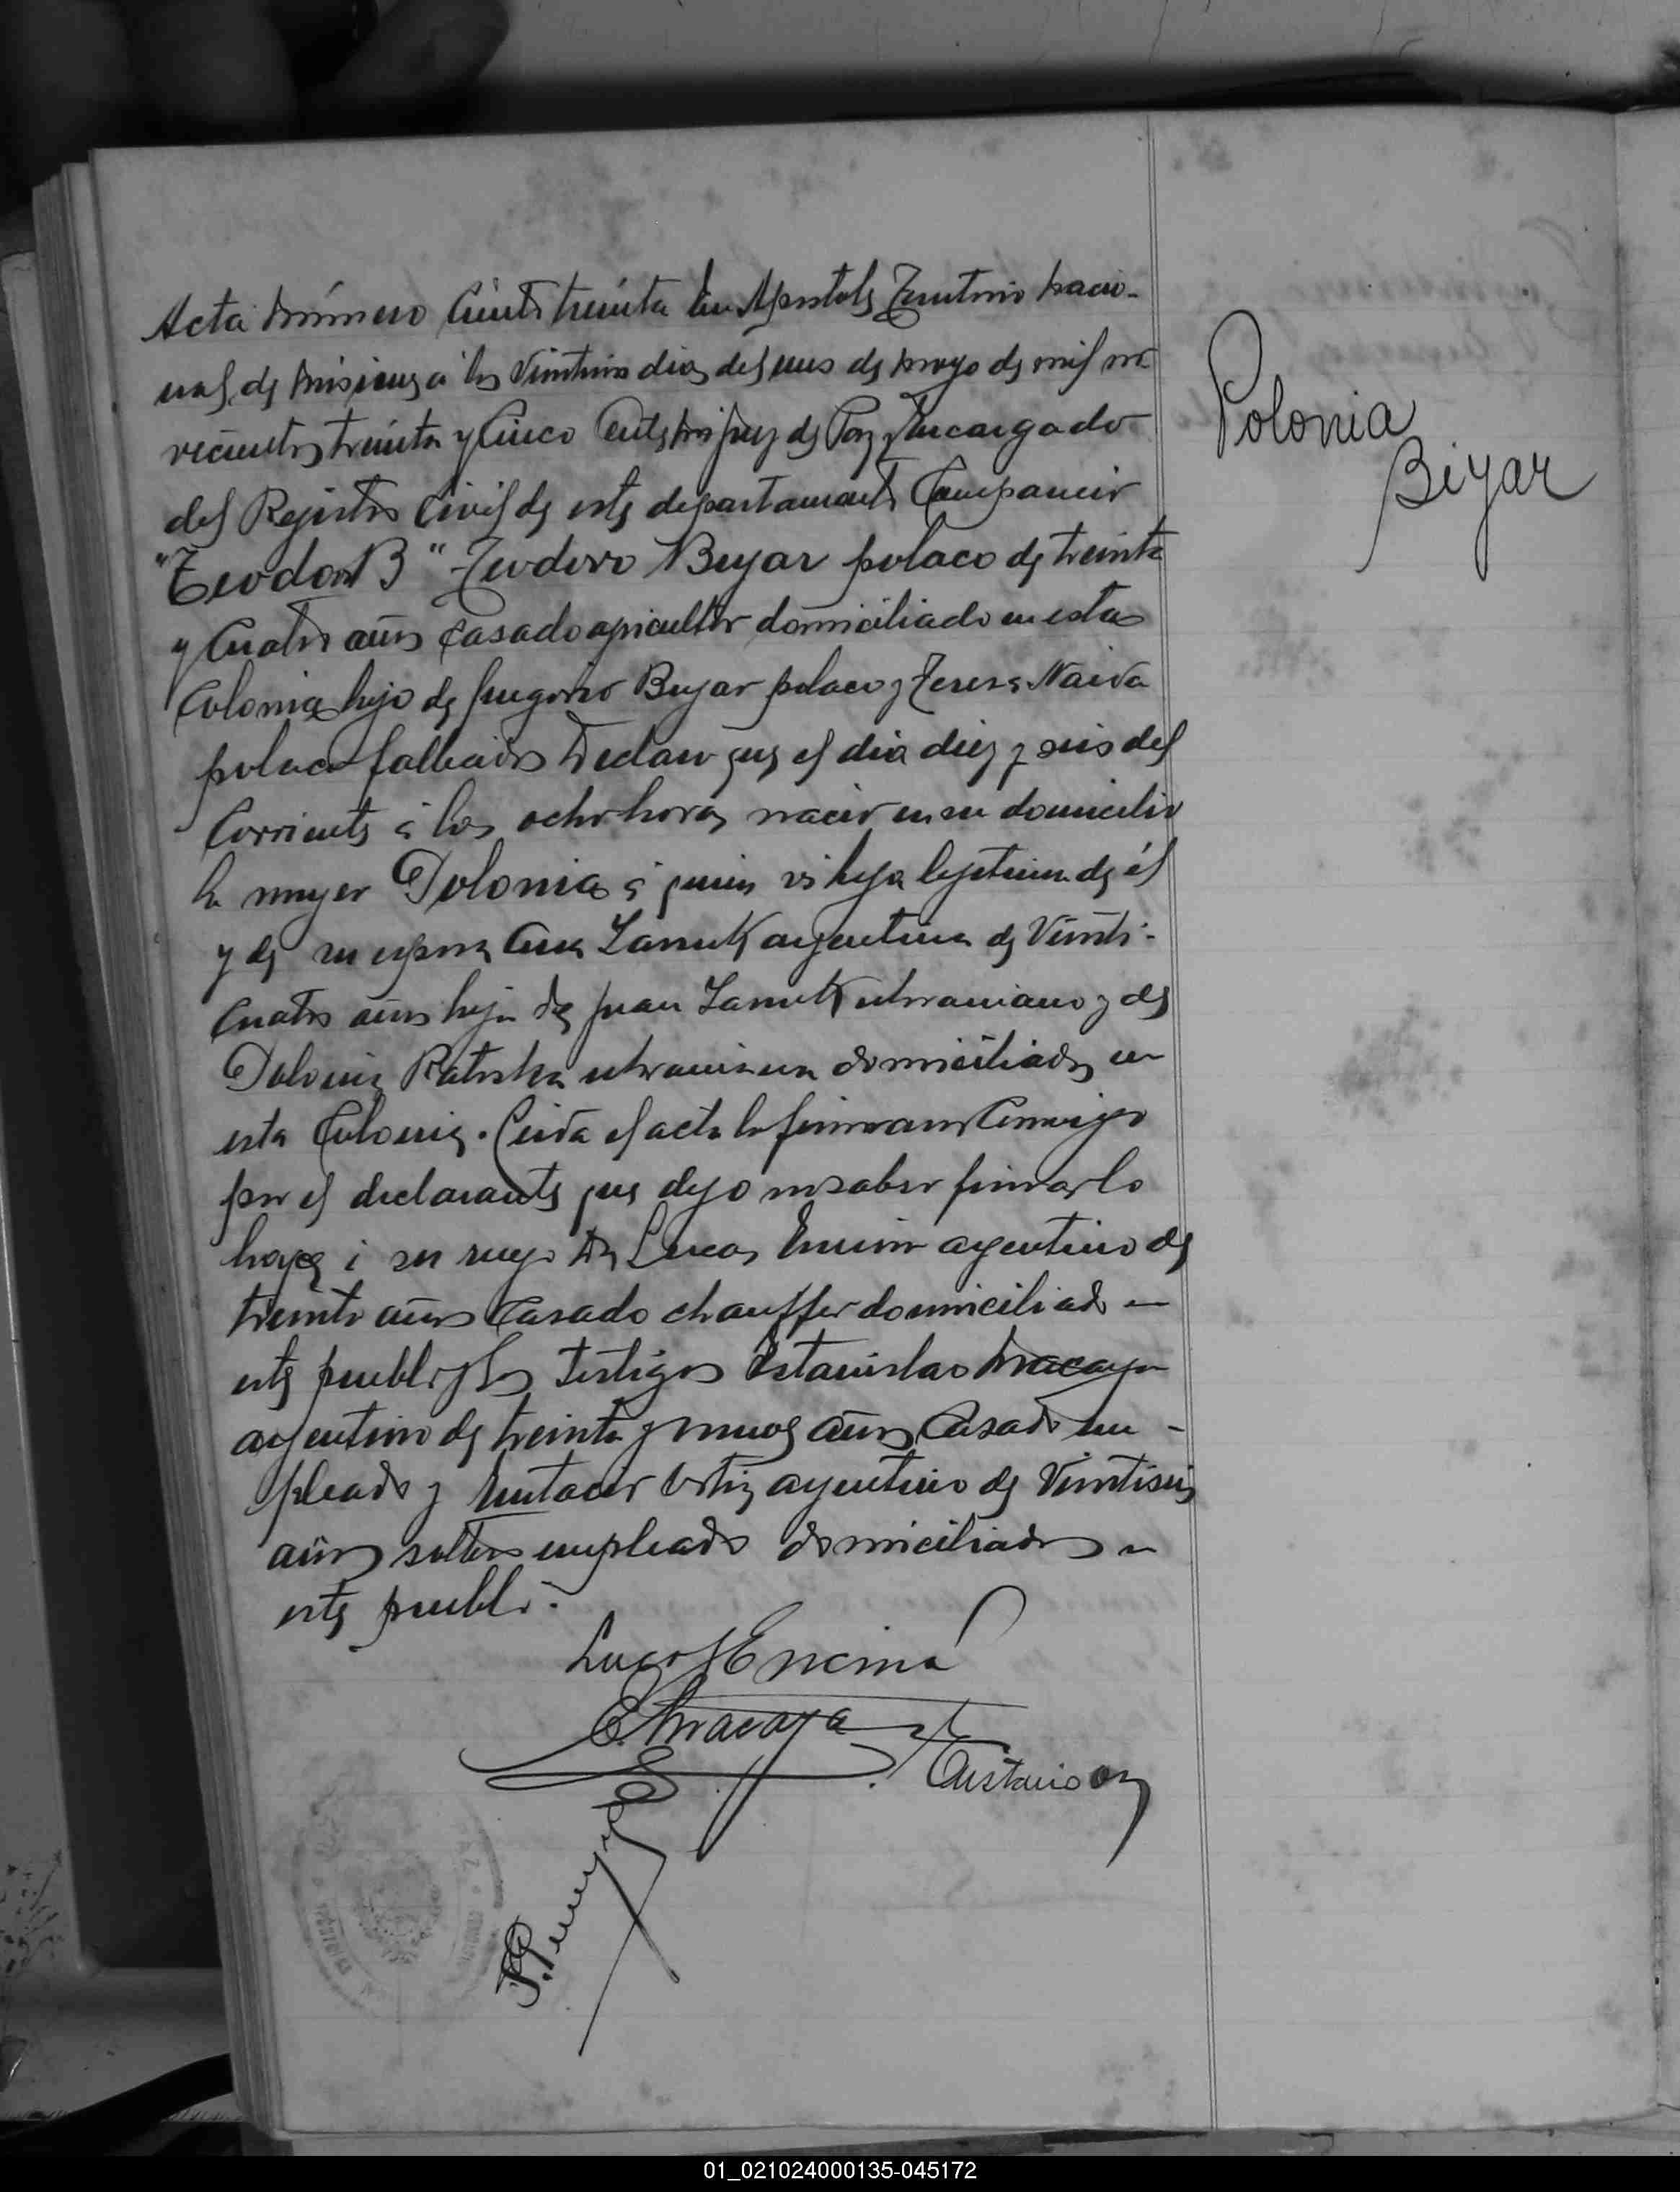 Acta número Ciento treinta En Apostoles Territorio Nacio-
nal de Misiones á los Veintiun dias del mes de Mayo de mil no
vecientos treinta y Cinco Ante mi Juez de Paz Encargado
del Registro Civil de este departamento Comparecio
"Teodoro B" Teodoro Beyar polaco de treinta
y Cuatro años Casado agricultor domiciliado en esta
Colonia hijo de Gregorio Beyar polaco y Teresa Naida
polaca fallecidos Declaro que el dia diez y seis del
Corriente á las ocho horas nacio en su domicilio
la mujer Polonia á quien vi hija legitima de él
y de su esposa Ana Zanuk argentina de Veinti-
Cuatro años hija de Juan Zanuk ukraniano y de
Polonia ukraniana domiciliados en
esta Colonia. Leida el acta la firmaron Conmigo
por el declarante que dijo no saber firmar lo
hace á su ruego Don Lucas Encina argentino de
treinta años Casado chauffer domiciliado en
este pueblo y los Testigos Estanislao Aracaya
argentino de treinta y nueve años Casado em-
pleado y Ortiz argentino de Veintiseis
años soltero empleado domiciliados en
este pueblo.
Lucas Encina
E. Aracaya
Polonia
Beyar
01_021024000135-045172